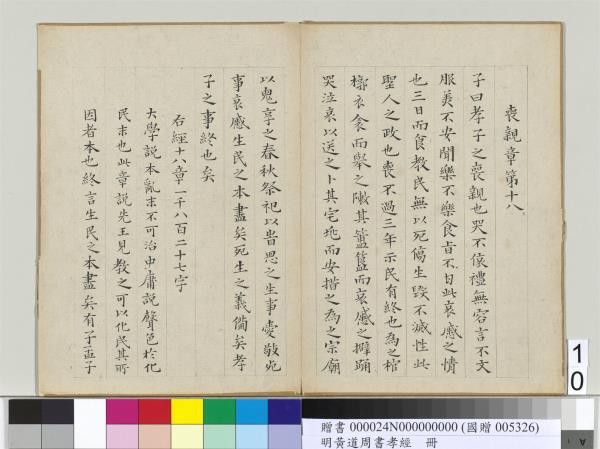 喪親章第十八
子曰孝子之喪親也哭不偯禮無容言不文
服美不安聞樂不樂食旨不甘此哀慼之情
也三日而食教民無以死傷生毀不滅性此
聖人之政也喪不過三年示民有終也為之棺
槨衣衾而舉之陳其簠簋而哀慼之擗踊
哭泣哀以送之卜其宅兆而安措之為之宗廟
以鬼享之春秋祭祀以昔思之生事愛敬死
事哀慼生民之本盡矣死生之義備矣孝
子之事終也矣
右經十八章一千八百二十七字
大學說本亂末不可治中庸說聲色於化
民末也此章說先王見教之可以化民其所
因者本也終言生民之本盡矣有子孟子
10
贈書 000024N000000000 (國贈 005326)
明黃道周書孝經 冊
A